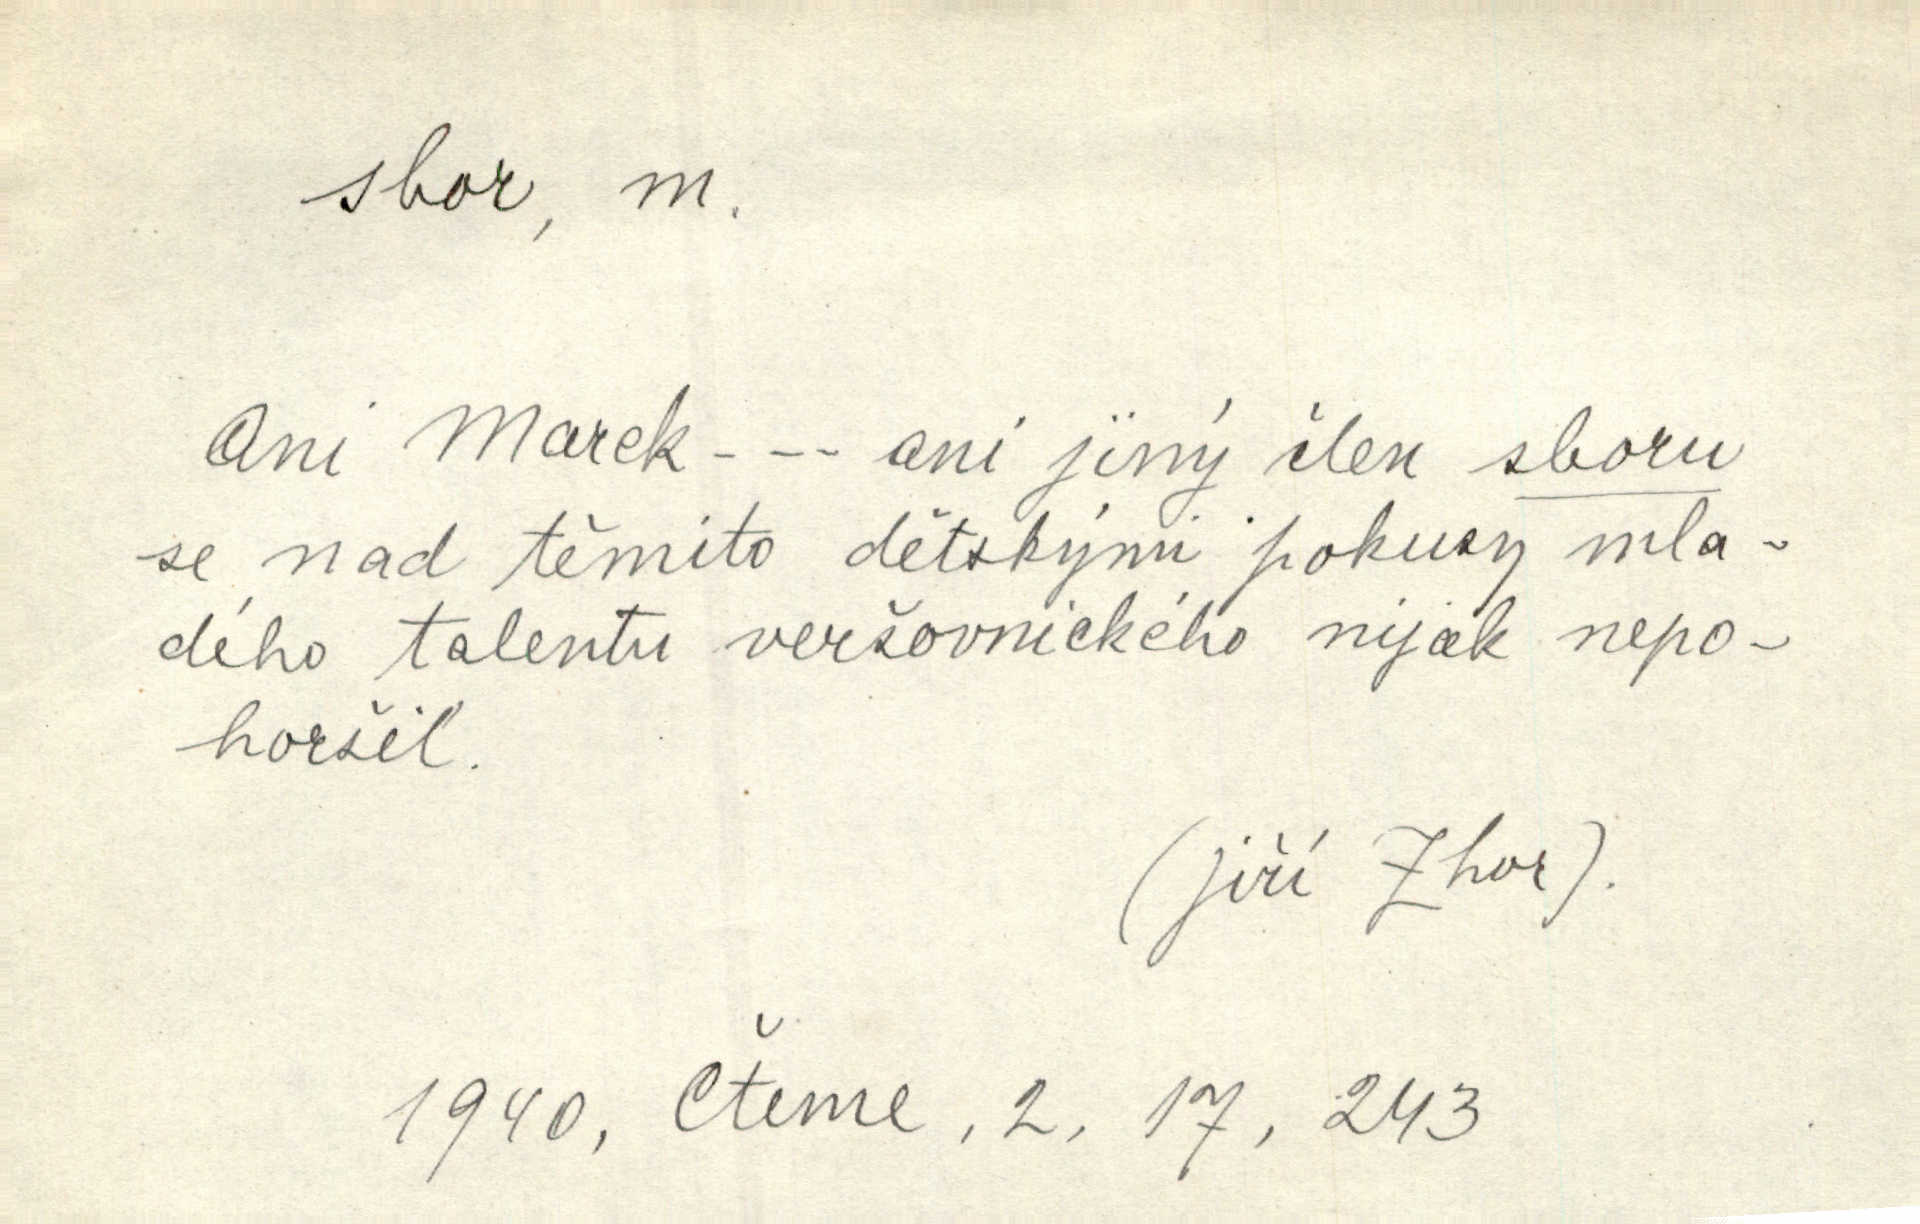 sbor, m.
Ani Marek - - - ani jiný člen sboru
se nad těmito dětskými pokusy mla-
dého talentu veršovnického nijak nepo-
horšil.
(Jiří Zhor).
1940, Čteme, 2, 17, 243